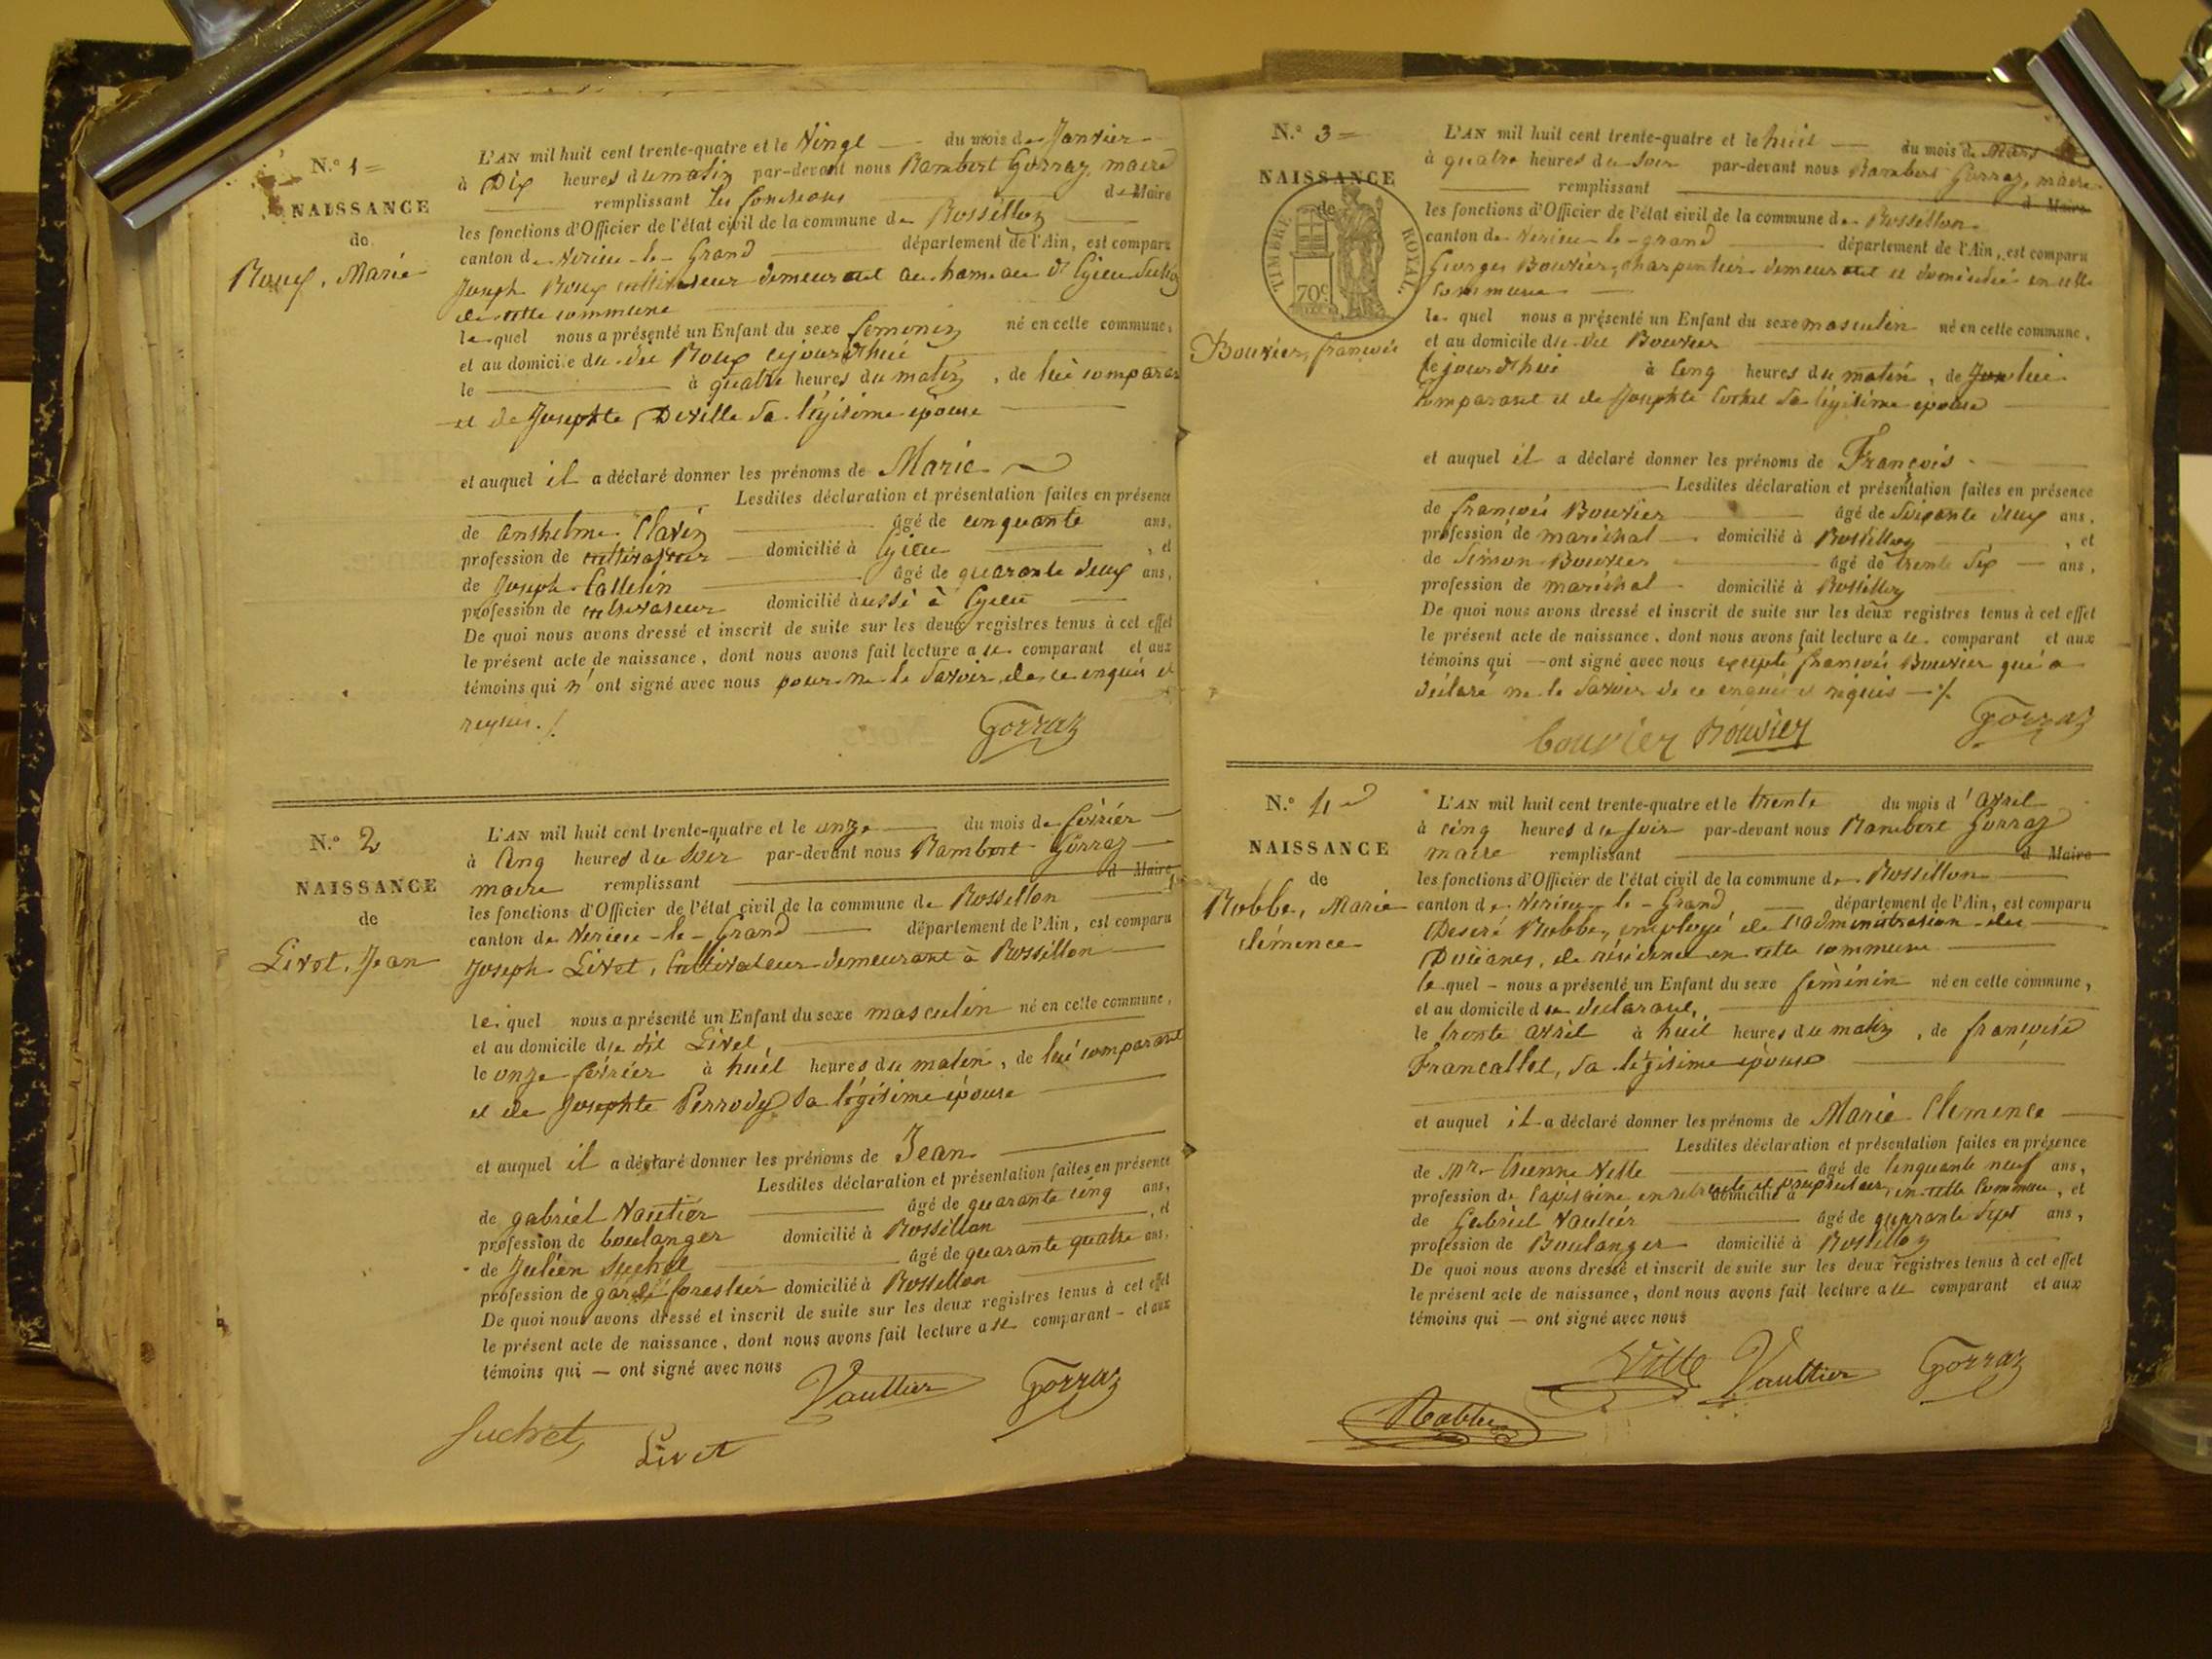 N.° 1 =
NAISSANCE
de
Roux, Marie
L'AN mil huit cent trente-quatre et le Vingt du mois de Janvier
à Dix heures du matin par-devant nous Rambert Gorraz, maire
remplissant les fonctions de Maire
les fonctions d'Officier de l'état civil de la commune de Rossillon
canton de Virieu-le-Grand département de l'Ain, est comparu
Joseph Roux cultivateur demeurant au hameau d'
de cette commune
lequel nous a présenté un Enfant du sexe femenin né en cette commune,
et au domicile du dit Roux cejourd'hui
le à quatre heures du matin, de lui comparant
et de Josephte Deville sa légitime épouse
et auquel il a déclaré donner les prénoms de Marie
Lesdites déclaration et présentation faites en présence
de anthelme Clavin âgé de cinquante ans,
profession de cultivateur domicilié à , et
de Joseph Callelin âgé de quarante deux ans,
profession de cultivateur domicilié aussi à
De quoi nous avons dressé et inscrit de suite sur les deux registres tenus à cet effet
le présent acte de naissance, dont nous avons fait lecture a le comparant et aux
témoins qui n'ont signé avec nous pour ne le savoir, de ce enquis et
requis ./.
Gorraz
N.° 2
NAISSANCE
de
Livet, Jean
L'AN mil huit cent trente-quatre et le onze du mois de février
à Cinq heures du soir par-devant nous Rambert Gorraz
maire remplissant d Maire
les fonctions d'Officier de l'état civil de la commune de Rossillon
canton de Virieu-le-Grand département de l'Ain, est comparu
Joseph Livet, Cultivateur demeurant à Rossillon
lequel nous a présenté un Enfant du sexe masculin né en cette commune,
et au domicile du dit Livet,
le onze février à huit heures du matin, de lui comparant
et de Josephte Perrody sa légitime épouse
et auquel il a déclaré donner les prénoms de Jean
Lesdites déclaration et présentation faites en présence
de gabriel Vautier âgé de quarante cinq ans,
profession de boulanger domicilié à Rossillon , et
de Julien Suchet âgé de quarante quatre ans,
profession de garde forestier domicilié à Rossillon
De quoi nous avons dressé et inscrit de suite sur les deux registres tenus à cet effet
le présent acte de naissance, dont nous avons fait lecture a le comparant et aux
témoins qui — ont signé avec nous
Vaultier Gorraz
Suchet Livet
N.° 3 =
NAISSANCE
de
TIMBRE ROYAL.
70c
Bouvier, françois
L'AN mil huit cent trente-quatre et le huit du mois de Mars
à quatre heures du soir par-devant nous Rambert Gorraz, maire
remplissant d Maire
les fonctions d'Officier de l'état civil de la commune de Rossillon
canton de Virieu-le-grand département de l'Ain, est comparu
Georges Bouvier, charpentier demeurant et domicilié en cette
commune
lequel nous a présenté un Enfant du sexe masculin né en cette commune,
et au domicile du dit Bouvier
cejourd'hui à Cinq heures du matin, de lui
comparant et de Josephte Cochet sa légitime épouse
et auquel il a déclaré donner les prénoms de François
Lesdites déclaration et présentation faites en présence
de françois Bouvier âgé de soixante deux ans,
profession de maréchal domicilié à Rossillon , et
de Simon Bouvier âgé de trente six ans,
profession de maréchal domicilié à Rossillon
De quoi nous avons dressé et inscrit de suite sur les deux registres tenus à cet effet
le présent acte de naissance, dont nous avons fait lecture a le comparant et aux
témoins qui — ont signé avec nous excepté françois Bouvier qui a
déclaré ne le savoir de ce enquis et requis ./.
bouvier Bouvier Gorraz
N.° 4
NAISSANCE
de
Robbe, Marie
clémence
L'AN mil huit cent trente-quatre et le trente du mois d'avril
à cinq heures du soir par-devant nous Rambert Gorraz
maire remplissant d Maire
les fonctions d'Officier de l'état civil de la commune de Rossillon
canton de Virieu-le-Grand département de l'Ain, est comparu
Desiré Robbe, employé de l'administration des
Douanes, de résidence en cette commune
lequel nous a présenté un Enfant du sexe féminin né en cette commune,
et au domicile du déclarant,
le trente avril à huit heures du matin, de françoise
Francallet, sa légitime épouse
et auquel il a déclaré donner les prénoms de Marie Clemence
Lesdites déclaration et présentation faites en présence
de Mr. Etienne Ville âgé de Cinquante neuf ans,
profession de Capitaine en retraite et propriétaire domicilié à en cette Commune, et
de Gabriel Vautier âgé de quarante sept ans,
profession de Boulanger domicilié à Rossillon
De quoi nous avons dressé et inscrit de suite sur les deux registres tenus à cet effet
le présent acte de naissance, dont nous avons fait lecture a le comparant et aux
témoins qui — ont signé avec nous
Ville Vaultier Gorraz
Robbe